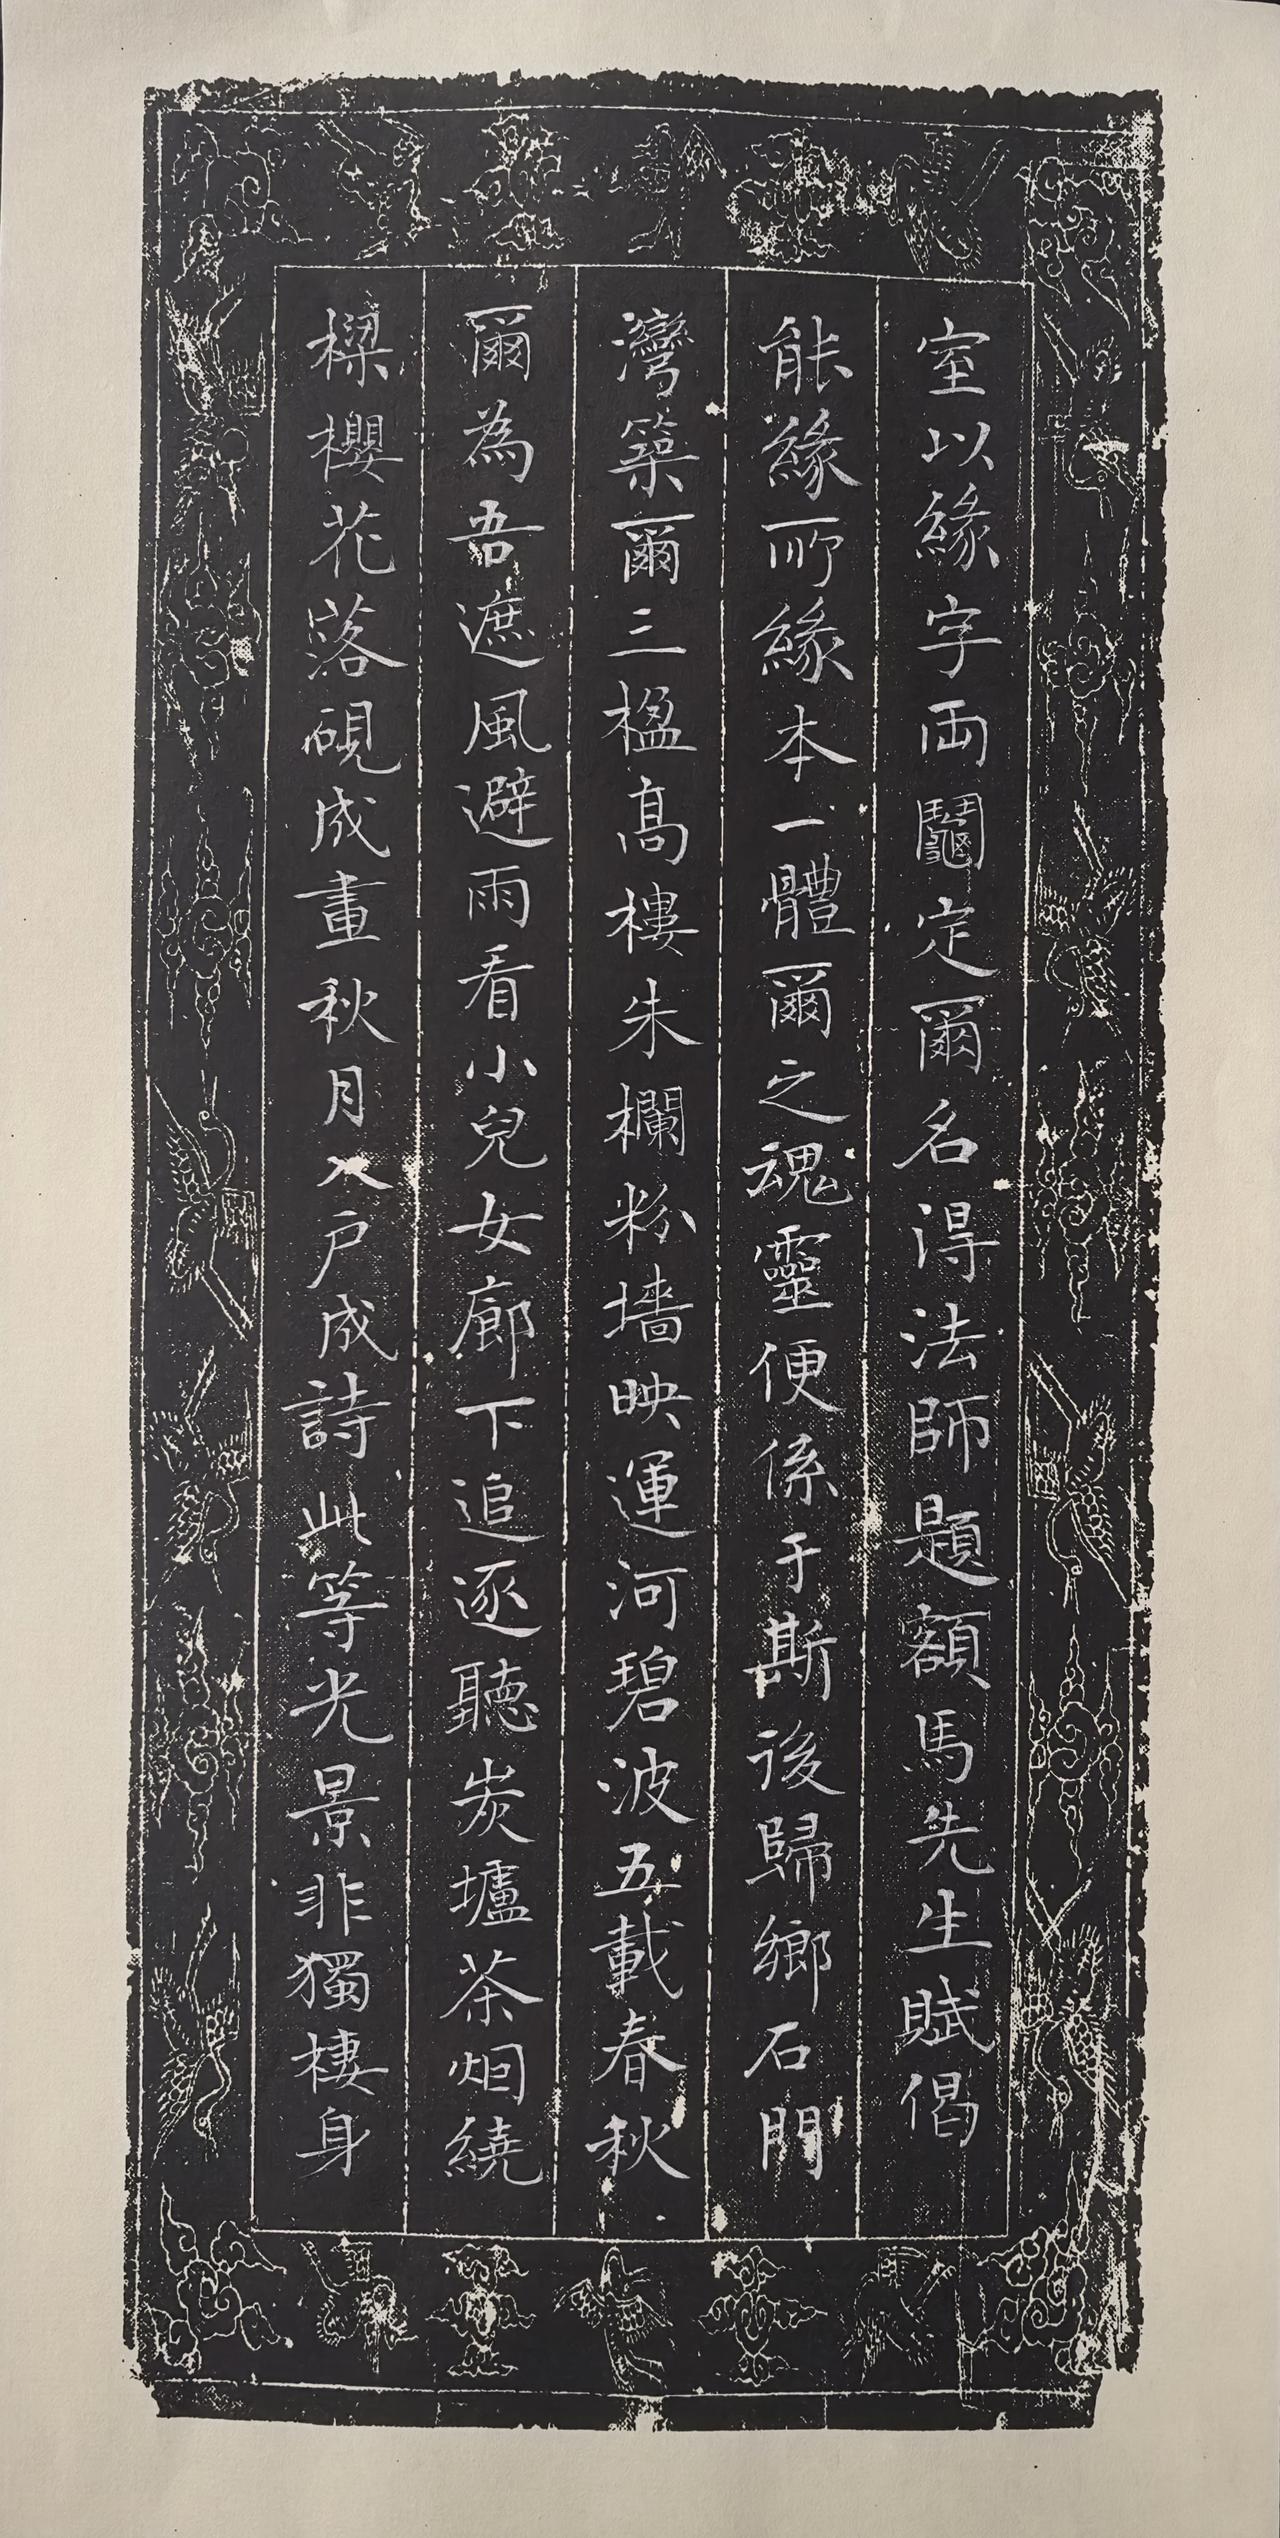 室以緣字両鬮定爾名得法師題額馬先生賦偈
能緣所緣本一體爾之魂靈便係于斯後歸鄉石門
灣築爾三楹高樓朱欄粉墻映運河碧波五載春秋
爾為吾遮風避雨看小兒女廊下追逐聽炭壚茶烟繞
樑櫻花落硯成畫秋月入戶成詩此等光景非獨棲身